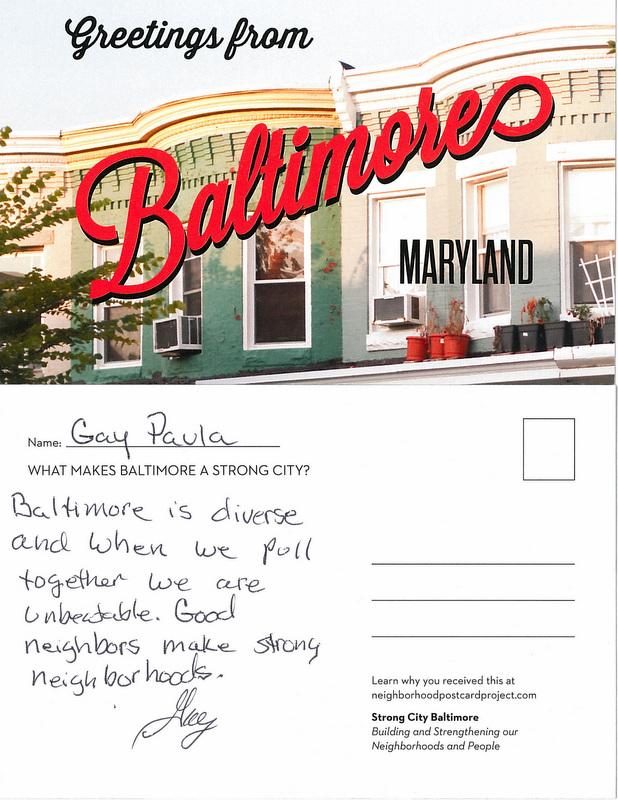 Greetings from
Baltimore
MARYLAND
Name: Gay Paula
WHAT MAKES BALTIMORE A STRONG CITY?
Baltimore is diverse
and when we pull
together we are
unbeatable. Good
neighbors make strong
neighborhoods.
Gay
Learn why you received this at
neighborhoodpostcardproject.com
Strong City Baltimore
Building and Strengthening our
Neighborhoods and People